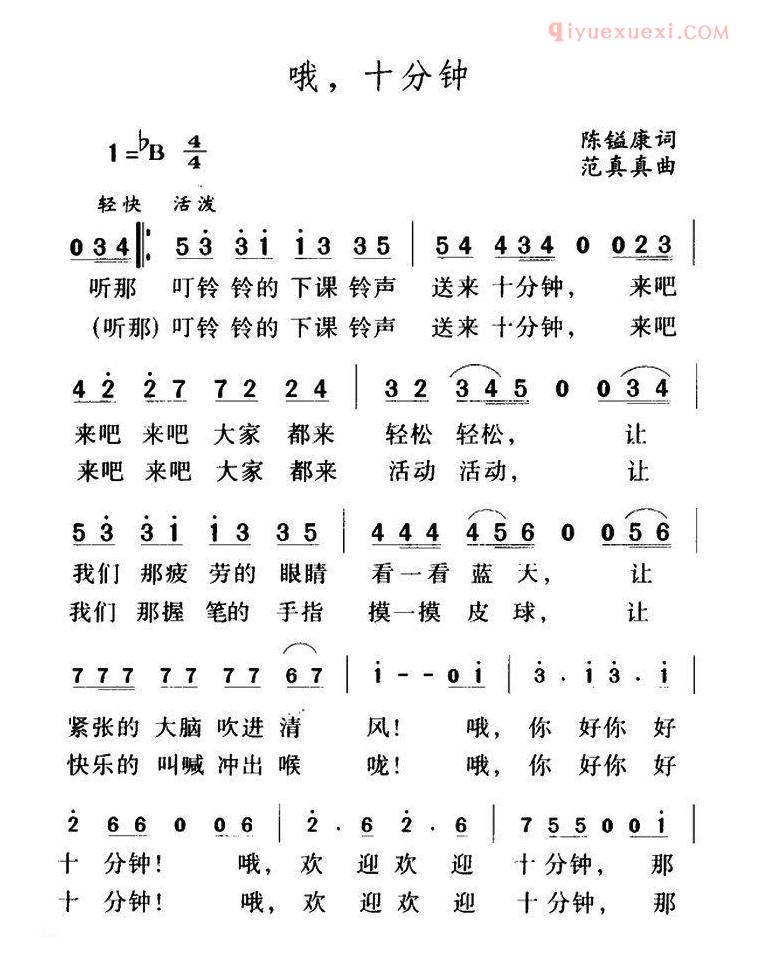 qiyuexuexi.com
哦，十分钟
1=♭B 4/4
陈镒康词
范真真曲
轻快 活泼
0 3 4 ‖: 5 3̇ 3̇ 1̇ 1̇ 3 3 5 | 5 4 4 3 4 0 0 2 3 |
听那 叮铃 铃的 下课 铃声 送来 十分钟， 来吧
(听那) 叮铃 铃的 下课 铃声 送来 十分钟， 来吧
4 2̇ 2̇ 7 7 2 2 4 | 3 2 3 4 5 0 0 3 4 |
来吧 来吧 大家 都来 轻松 轻松， 让
来吧 来吧 大家 都来 活动 活动， 让
5 3̇ 3̇ 1̇ 1̇ 3 3 5 | 4 4 4 4 5 6 0 0 5 6 |
我们 那疲 劳的 眼睛 看一看 蓝 天， 让
我们 那握 笔的 手指 摸一摸 皮 球， 让
7 7 7 7 7 7 7 6 7 | 1̇ - - 0 1̇ | 3̇ . 1̇ 3̇ . 1̇ |
紧张的 大脑 吹进 清 风！ 哦， 你 好你 好
快乐的 叫喊 冲出 喉 咙！ 哦， 你 好你 好
2̇ 6 6 0 0 6 | 2̇ . 6 2̇ . 6 | 7 5 5 0 0 1̇ |
十 分钟！ 哦， 欢 迎欢 迎 十 分钟， 那
十 分钟！ 哦， 欢 迎欢 迎 十 分钟， 那